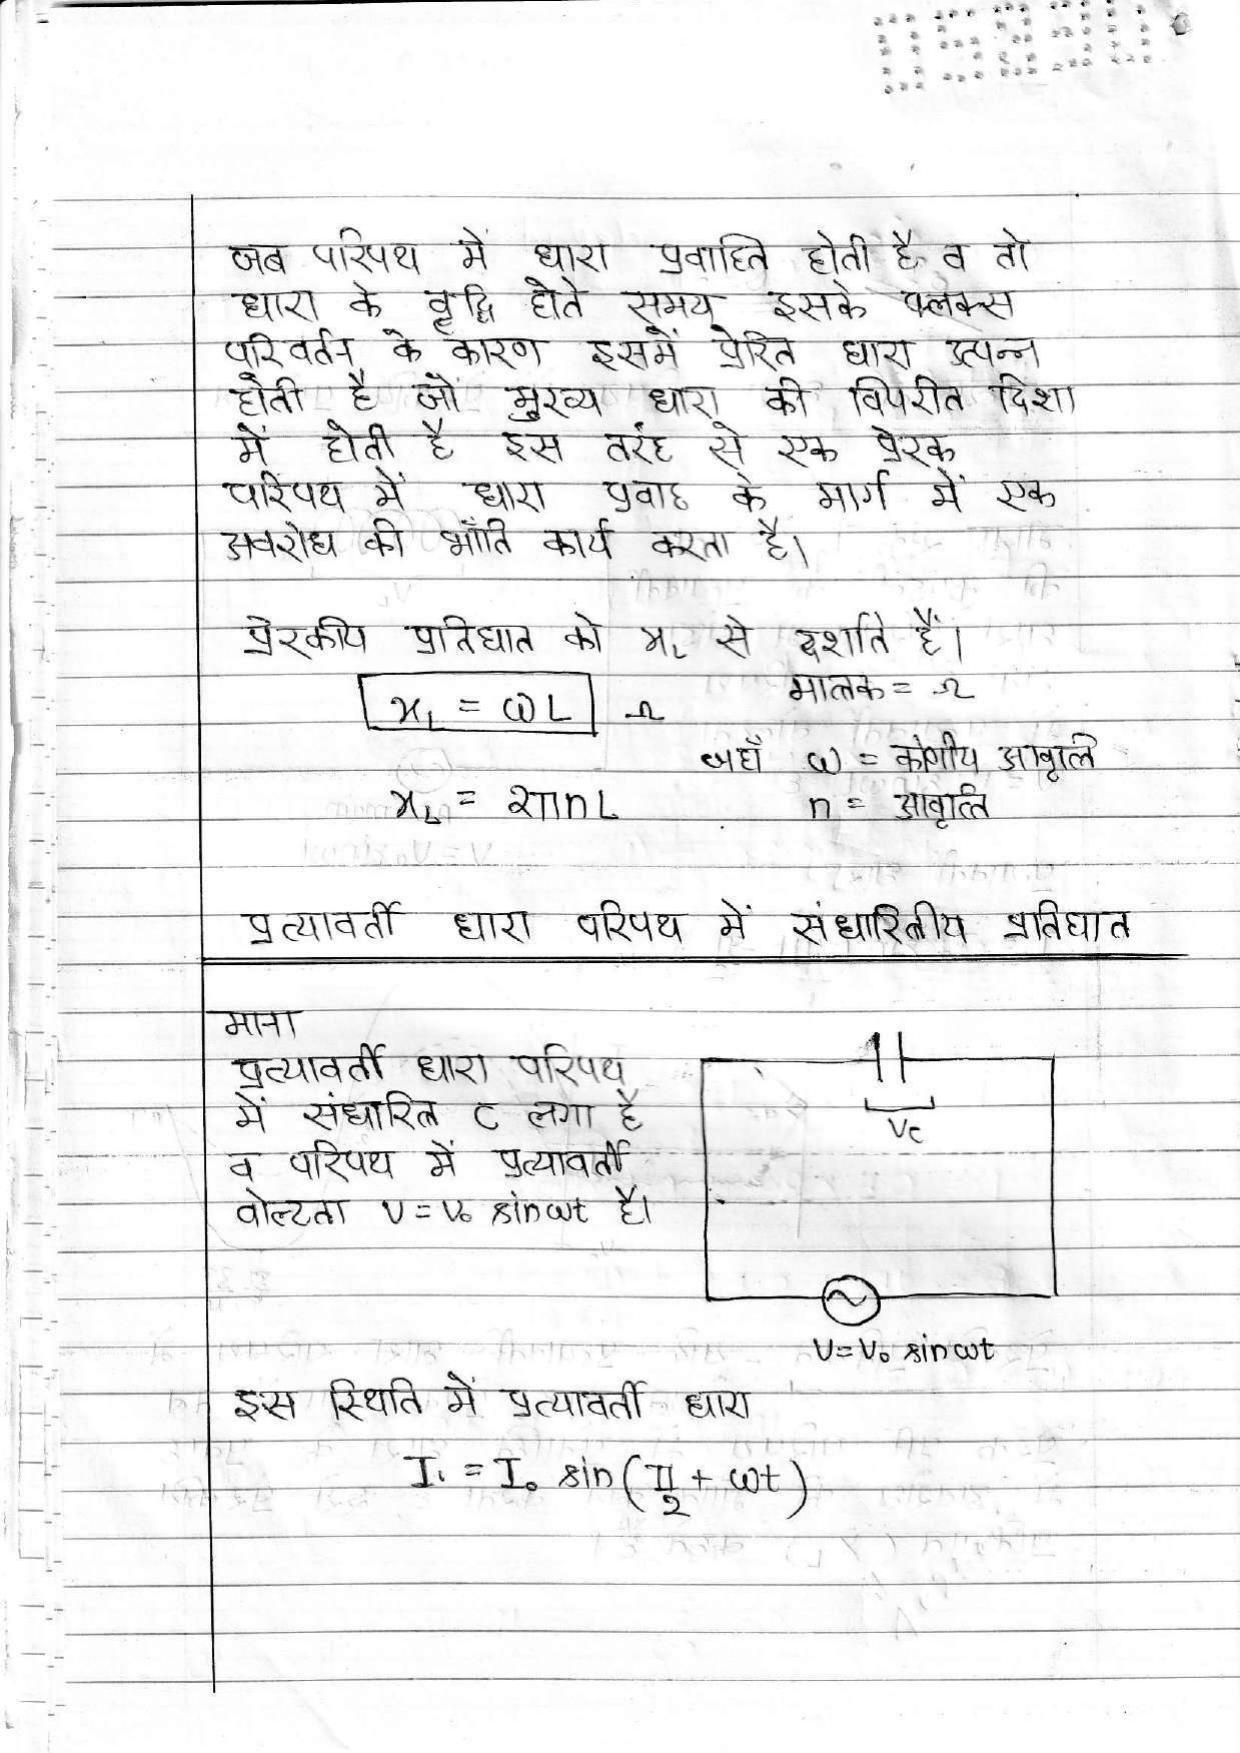 जब परिपथ में धारा प्रवाहित होती है व तो
धारा के वृद्धि होते समय इसके फ्लक्स
परिवर्तन के कारण इसमें प्रेरित धारा उत्पन्न
होती है जो मुख्य धारा की विपरीत दिशा
में होती है इस तरह से एक प्रेरक
परिपथ में धारा प्रवाह के मार्ग में एक
अवरोध की भाँति कार्य करता है।
प्रेरकीय प्रतिघात को XL से दर्शाते हैं।
मात्रक = Ω
XL = ωL Ω
जहाँ ω = कोणीय आवृत्ति
XL = 2πnL n = आवृत्ति
प्रत्यावर्ती धारा परिपथ में संधारित्रीय प्रतिघात
माना
प्रत्यावर्ती धारा परिपथ
में संधारित्र C लगा है
व परिपथ में प्रत्यावर्ती
वोल्टता V = V₀ sin ωt है।
Vc
V = V₀ sin ωt
इस स्थिति में प्रत्यावर्ती धारा
I = I₀ sin (π/2 + ωt)